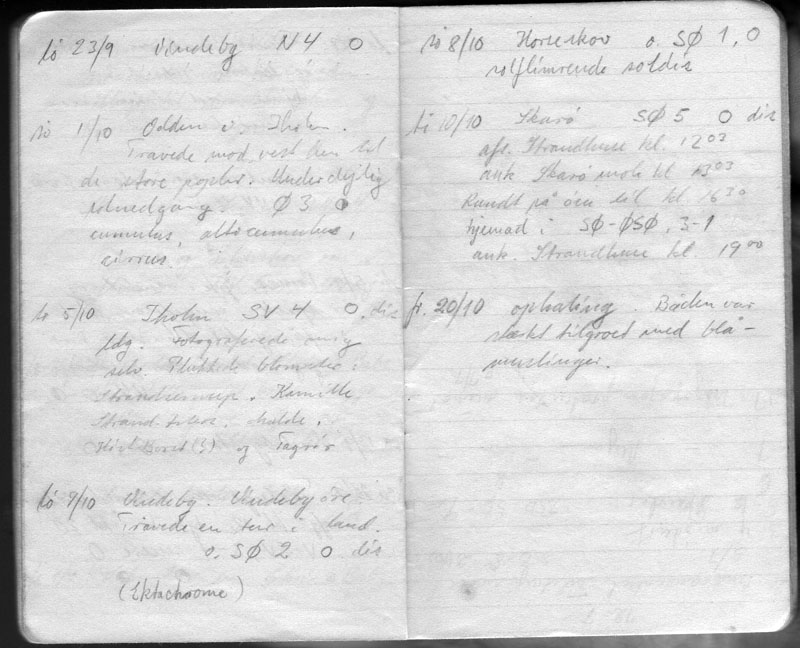 lö 23/9 Vindeby N 4 O
sö 1/10 Odden v. Tholm.
Travede mod vest hen til
de store popler. Underdejlig
solnedgang. Ø 3 O
cumulus, altocumulus,
cirrus.
5/10 Tholm SV 4 O. dis
ldg. Fotograferede mig
selv. Plukkede blomster:
Kamille,
Strand
og Tagrør
lö 7/10 Vindeby. Vindeby öre.
Travede en tur i land.
o. SØ 2 O dis
(Ektachrome)
sö 8/10 Horseskov o. SØ 1, O
solflimrende soldis
ti 10/10 Skarö SØ 5 O dis
afs. Strandhuse kl. 12 03
ank. Skarö mole kl. 13 03
Rundt på öen til kl. 16 30
hjemad i SØ-ØSØ, 3-1
ank. Strandhuse kl. 19 00
fr. 20/10 ophaling. Båden var
stærkt tilgroet med blå-
muslinger.